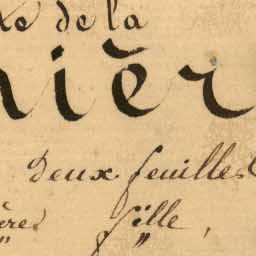 de la
nièr
deux feuilles
ères fille,